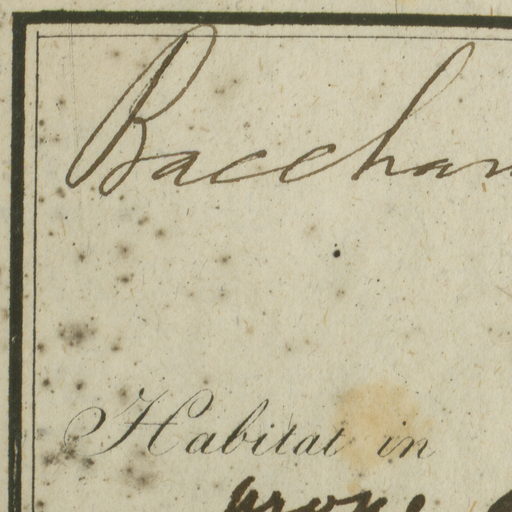 Bacchar
Habitat in